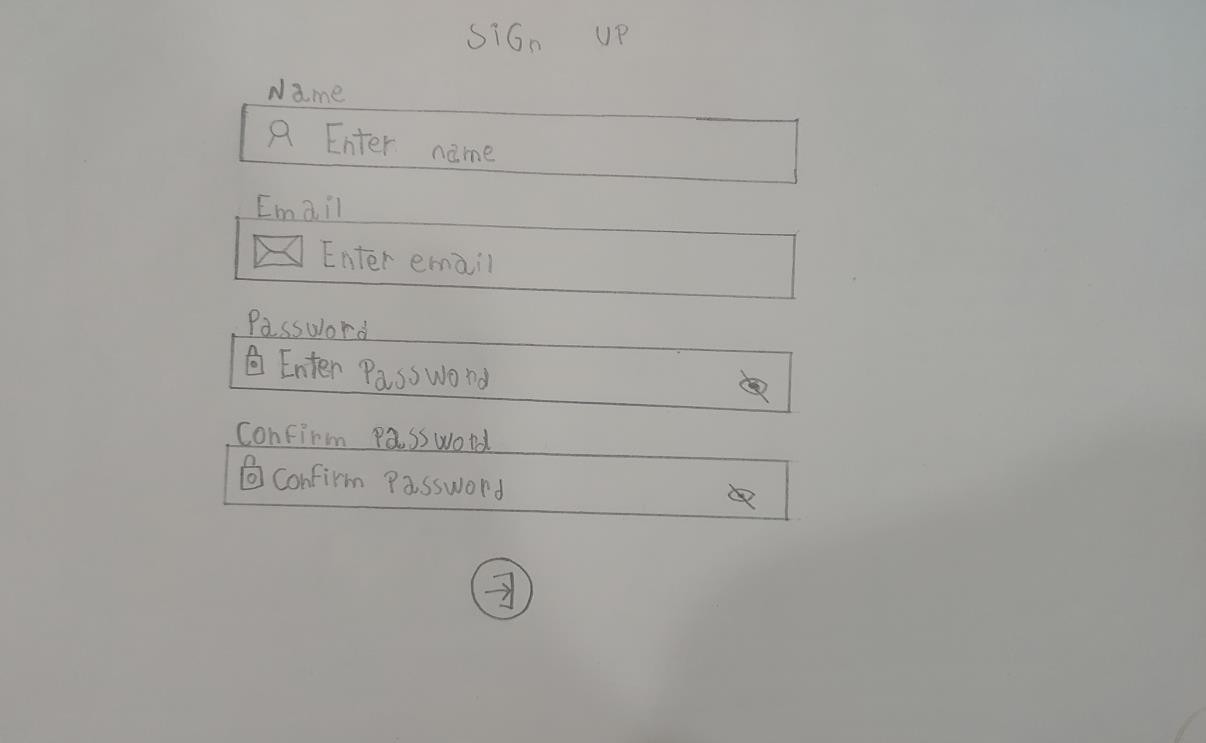 SiGn UP
Name
Enter name
Email
Enter email
Password
Enter Password
Confirm Password
Confirm Password